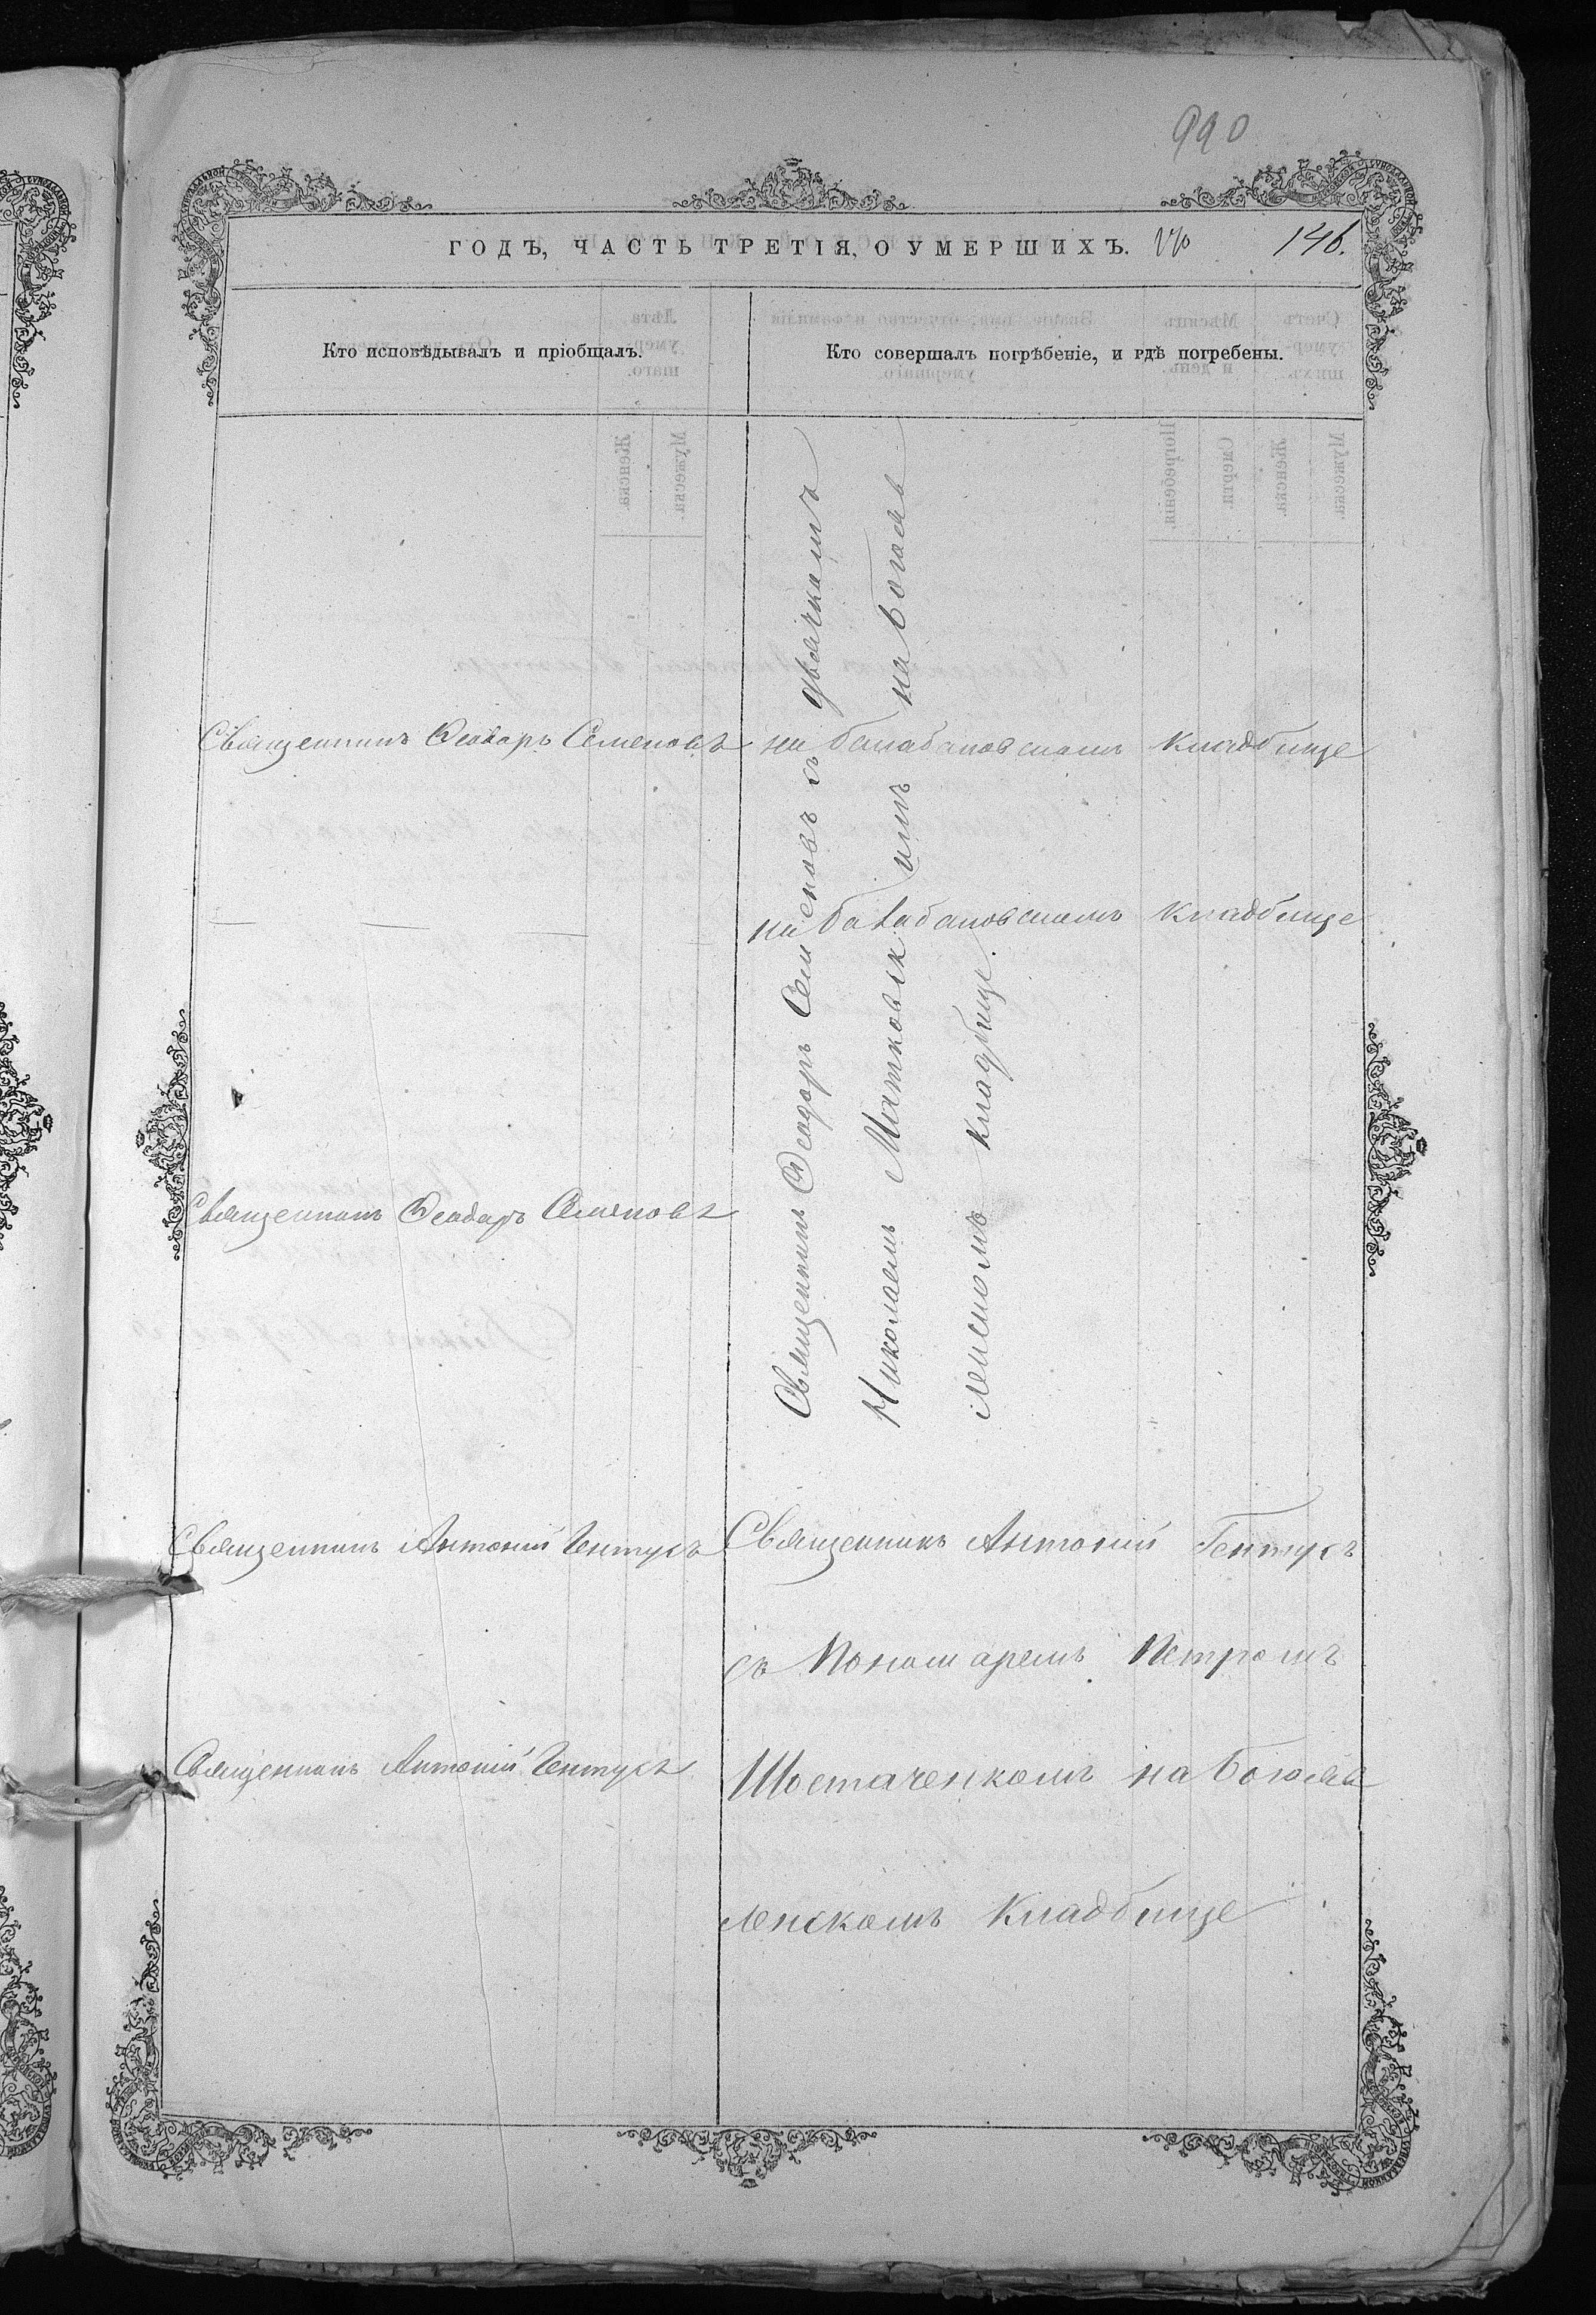 990
ГОДЪ, ЧАСТЬ ТРЕТІЯ, О УМЕРШИХЪ.
146.
Кто исповѣдывалъ и пріобщалъ.
Кто совершалъ погрѣбеніе, и гдѣ погребены.
Священникъ Ѳеодоръ Семеновъ
на балабановскомъ кладбище
на балабановскомъ кладбище
Священникъ Ѳеодоръ Семеновъ съ дьячкомъ
Николаемъ Матковскимъ на Богояв
ленскомъ кладбище.
Священникъ Ѳеодоръ Семеновъ
Священникъ Антоній Гентусъ
Священникъ Антоній Гентусъ
съ Пономаремъ Петромъ
Священникъ Антоній Гентусъ
Шостаченкомъ на Богояв
ленскомъ Кладбище